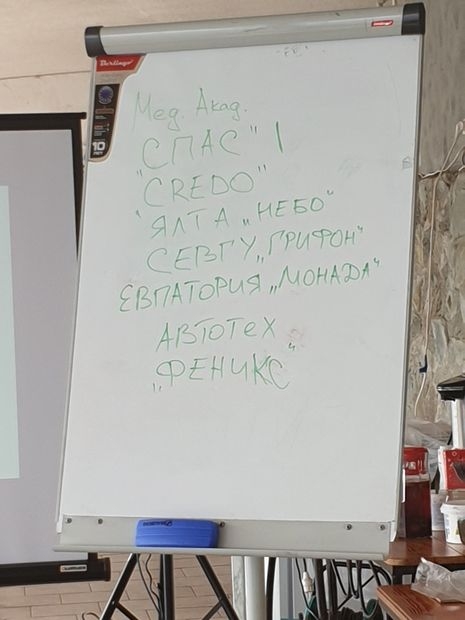 Berlingo
10
ЛЕТ
Мед. Акад.
"СПАС" 1
"CREDO"
ЯЛТА „НЕБО"
СЕВГУ „ГРИФОН"
ЕВПАТОРИЯ „МОНАДА"
АВТОТЕХ
„ФЕНИКС"